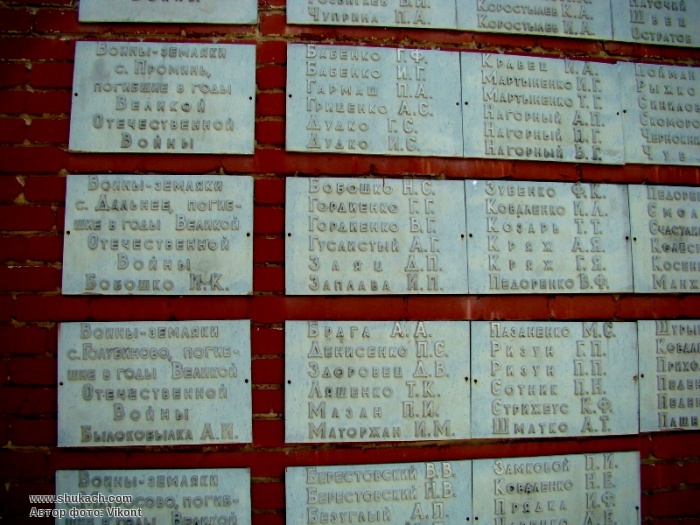 Войны
Чуприна П.А.
Коростылев К.А.
Коростылев И.А.
Паточий
Швец
Остратов
Воины-земляки
с. Проминь,
погибшие в годы
Великой
Отечественной
Войны
Бабенко Г.Ф.
Бабенко И.Г.
Гармаш П.А.
Гриценко А.С.
Дудко Г.С.
Дудко И.С.
Кравец И.А.
Мартыненко И.Г.
Мартыненко Т.Г.
Нагорный А.П.
Нагорный П.Г.
Нагорный В.Г.
Рыжко
Воины-земляки
с. Дальнее, погиб-
шие в годы Великой
Отечественной
Войны
Бобошко И.К.
Бобошко Н.С.
Гордиенко Г.Г.
Гордиенко В.Г.
Гуслистый А.Г.
Заяц Д.П.
Заплава И.П.
Зубенко Ф.К.
Коваленко И.Л.
Козарь Т.Т.
Кряж А.Я.
Кряж Г.Я.
Педоренко В.Ф.
Воины-земляки
с. Голубиново, погиб-
шие в годы Великой
Отечественной
Войны
Былокобылка А.И.
Брага А.А.
Денисенко П.С.
Здоровец Д.В.
Ляшенко Т.К.
Мазан П.И.
Маторжан И.М.
Пазаненко М.С.
Ризун Г.П.
Ризун П.П.
Сотник П.Н.
Стрижеус К.Ф.
Шматко А.Т.
Воины-земляки
сово, погиб-
в годы Великой
Берестовский В.В.
Берестовский Н.В.
Безуглый А.П.
Замковой П.И.
Коваленко Н.Е.
Прядка И.Ф.
www.shukach.com
Автор фото: Vikont